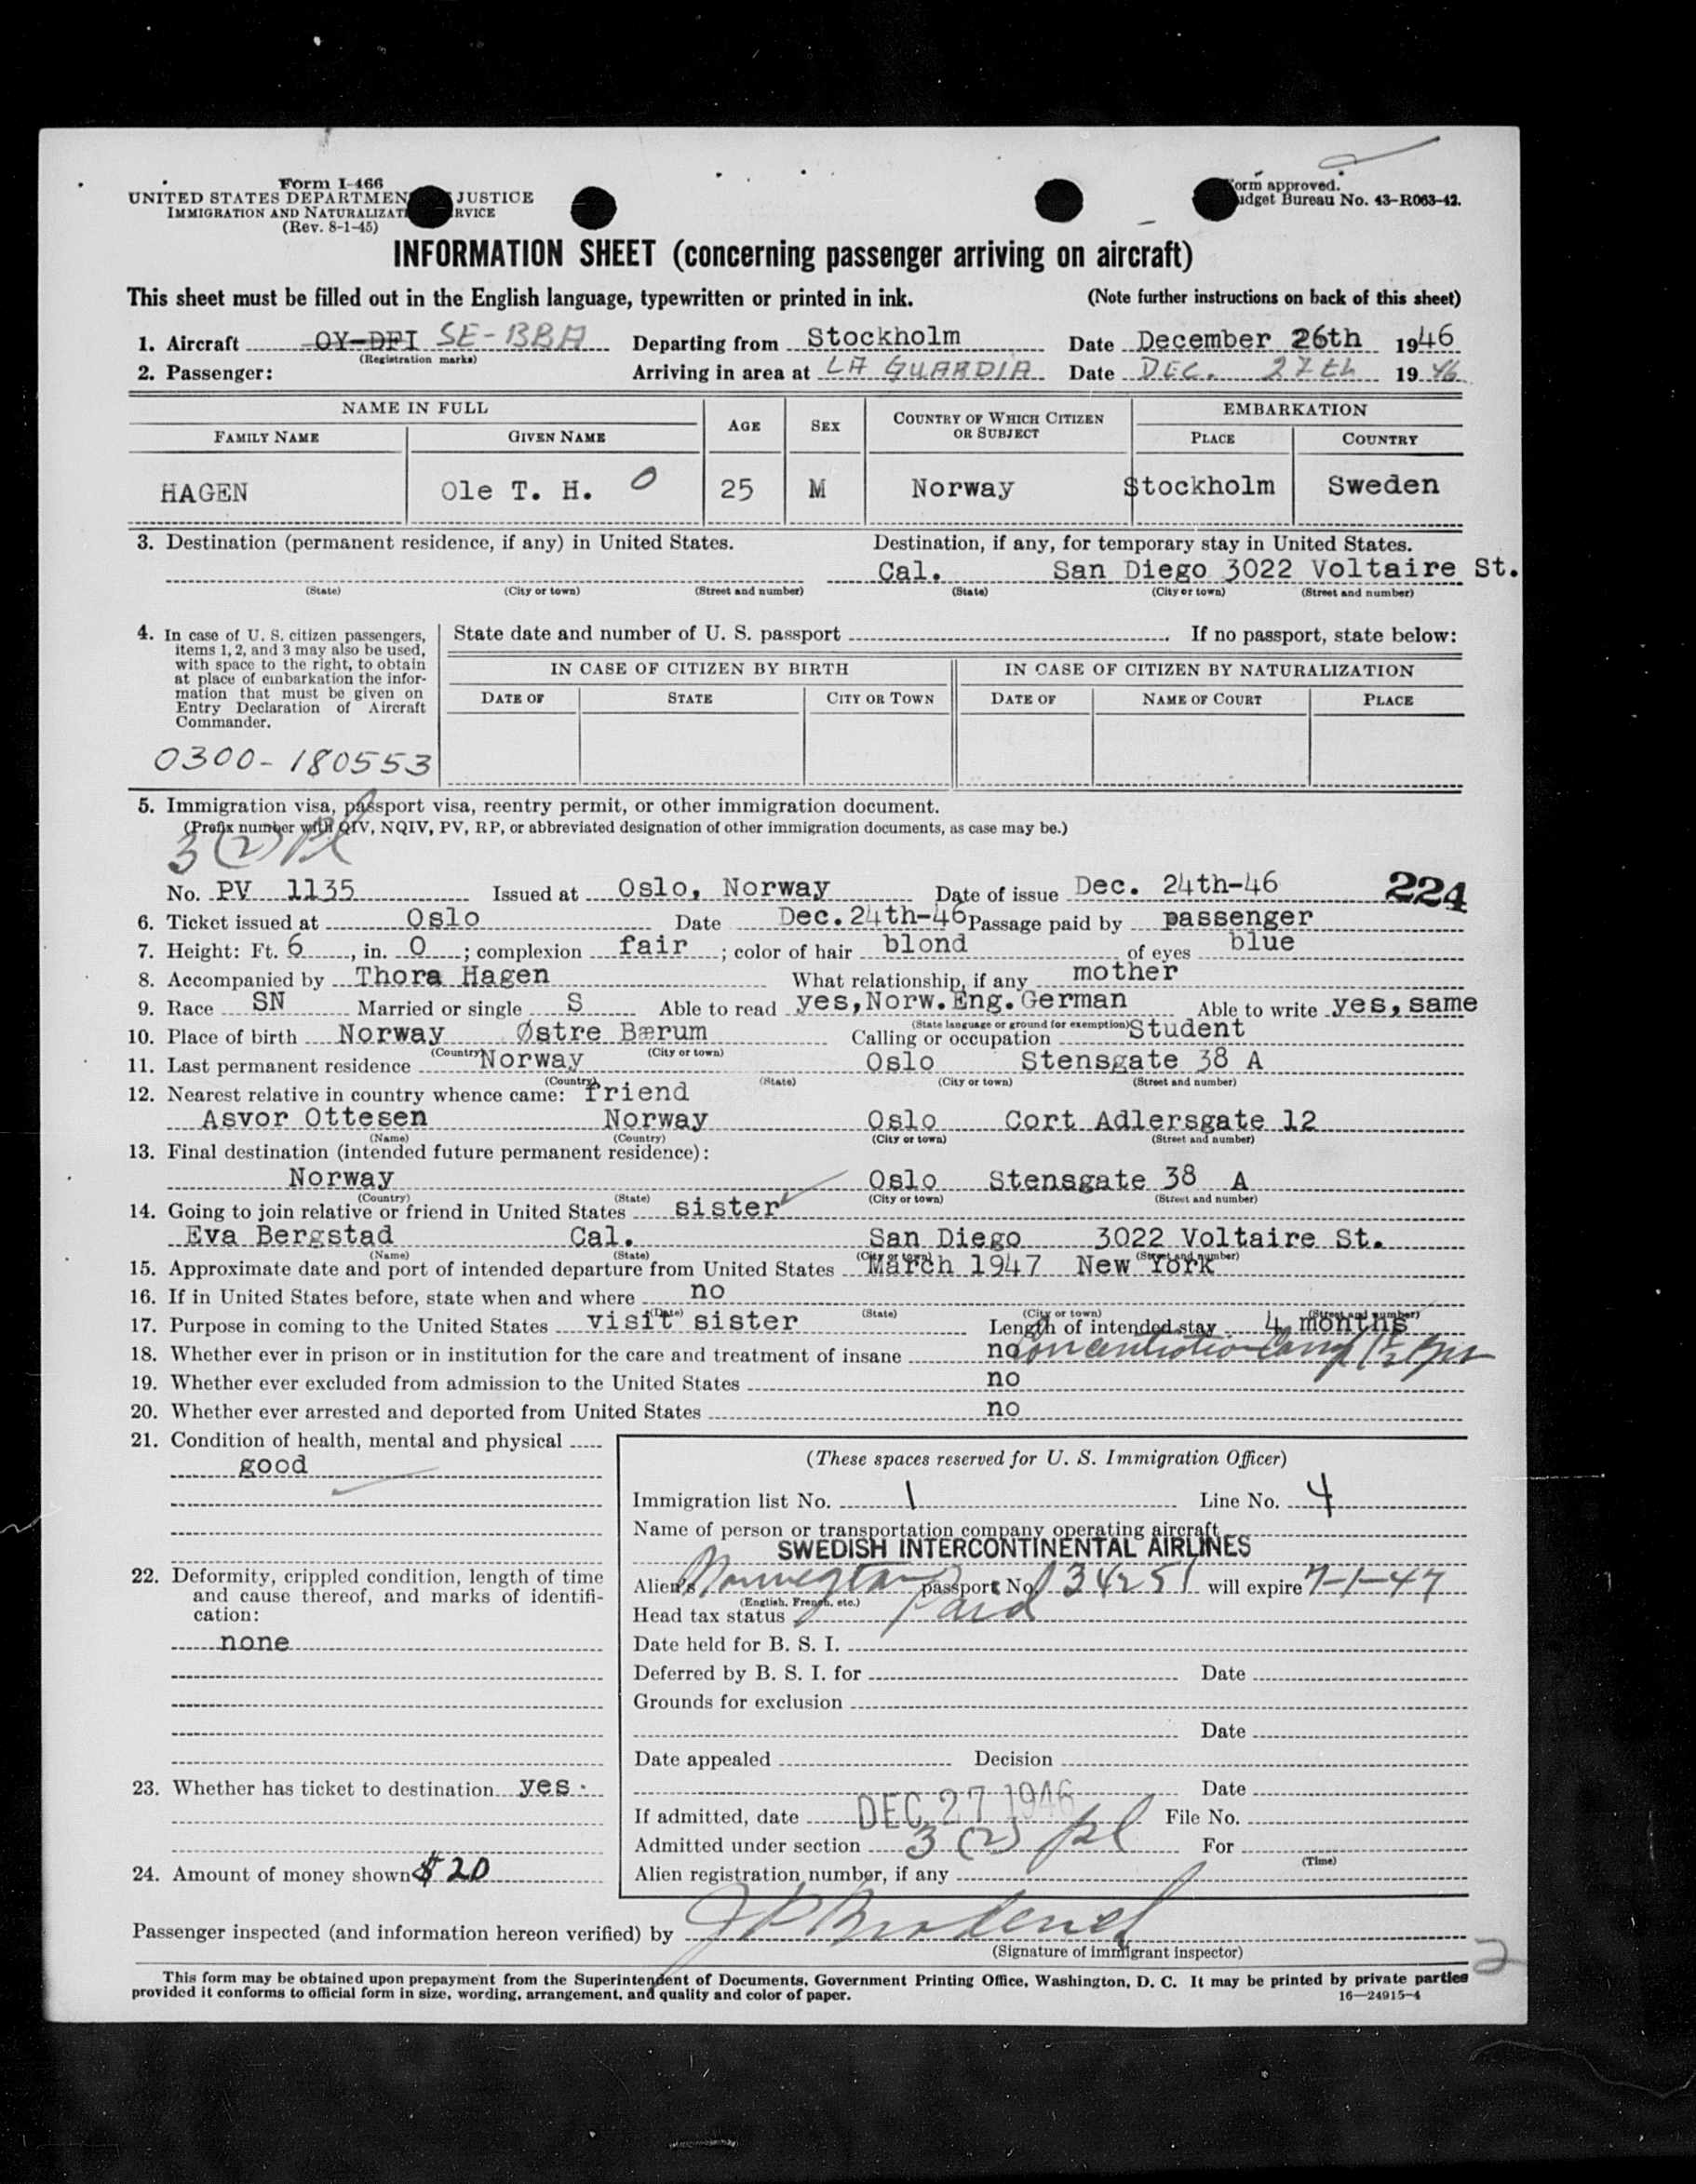 Form I-466
UNITED STATES DEPARTMEN JUSTICE
IMMIGRATION AND NATURALIZAT RVICE
(Rev. 8-1-45)
orm approved.
udget Bureau No. 43-R063-42.
INFORMATION SHEET (concerning passenger arriving on aircraft)
This sheet must be filled out in the English language, typewritten or printed in ink. (Note further instructions on back of this sheet)
1. Aircraft OY-DFI SE-BBA Departing from Stockholm Date December 26th 1946
(Registration marks)
2. Passenger: Arriving in area at LA GUARDIA Date DEC. 27th 1946
NAME IN FULL AGE SEX COUNTRY OF WHICH CITIZEN OR SUBJECT EMBARKATION
FAMILY NAME GIVEN NAME PLACE COUNTRY
HAGEN Ole T. H. 0 25 M Norway Stockholm Sweden
3. Destination (permanent residence, if any) in United States. Destination, if any, for temporary stay in United States.
Cal. San Diego 3022 Voltaire St.
(State) (City or town) (Street and number) (State) (City or town) (Street and number)
4. In case of U. S. citizen passengers, items 1, 2, and 3 may also be used, with space to the right, to obtain at place of embarkation the information that must be given on Entry Declaration of Aircraft Commander.
State date and number of U. S. passport If no passport, state below:
IN CASE OF CITIZEN BY BIRTH IN CASE OF CITIZEN BY NATURALIZATION
DATE OF STATE CITY OR TOWN DATE OF NAME OF COURT PLACE
0300-180553
5. Immigration visa, passport visa, reentry permit, or other immigration document.
(Prefix number with QIV, NQIV, PV, RP, or abbreviated designation of other immigration documents, as case may be.)
3 (2) pl
No. PV 1135 Issued at Oslo, Norway Date of issue Dec. 24th-46 224
6. Ticket issued at Oslo Date Dec.24th-46 Passage paid by passenger
7. Height: Ft. 6, in. 0; complexion fair; color of hair blond of eyes blue
8. Accompanied by Thora Hagen What relationship, if any mother
9. Race SN Married or single S Able to read yes,Norw.Eng.German Able to write yes, same
(State language or ground for exemption)
10. Place of birth Norway Østre Bærum Calling or occupation Student
(Country) (City or town)
11. Last permanent residence Norway Oslo Stensgate 38 A
(Country) (State) (City or town) (Street and number)
12. Nearest relative in country whence came: friend
Asvor Ottesen Norway Oslo Cort Adlersgate 12
(Name) (Country) (City or town) (Street and number)
13. Final destination (intended future permanent residence):
Norway Oslo Stensgate 38 A
(Country) (State) (City or town) (Street and number)
14. Going to join relative or friend in United States sister
Eva Bergstad Cal. San Diego 3022 Voltaire St.
(Name) (State) (City or town) (Street and number)
15. Approximate date and port of intended departure from United States March 1947 New York
16. If in United States before, state when and where no
(Date) (State) (City or town) (Street and number)
17. Purpose in coming to the United States visit sister Length of intended stay 4 months
18. Whether ever in prison or in institution for the care and treatment of insane no Concentration Camp 1½ yrs
19. Whether ever excluded from admission to the United States no
20. Whether ever arrested and deported from United States no
21. Condition of health, mental and physical
good
22. Deformity, crippled condition, length of time and cause thereof, and marks of identification:
none
23. Whether has ticket to destination yes.
24. Amount of money shown $ 20
(These spaces reserved for U. S. Immigration Officer)
Immigration list No. 1 Line No. 4
Name of person or transportation company operating aircraft
SWEDISH INTERCONTINENTAL AIRLINES
Alien's Norwegian passport No. 34251 will expire 7-1-47
(English, French, etc.)
Head tax status Paid
Date held for B. S. I.
Deferred by B. S. I. for Date
Grounds for exclusion
Date
Date appealed Decision
Date
If admitted, date DEC 27 1946 File No.
Admitted under section 3 (2) pl For
(Time)
Alien registration number, if any
Passenger inspected (and information hereon verified) by
(Signature of immigrant inspector)
2
This form may be obtained upon prepayment from the Superintendent of Documents, Government Printing Office, Washington, D. C. It may be printed by private parties
provided it conforms to official form in size, wording, arrangement, and quality and color of paper. 16—24915-4